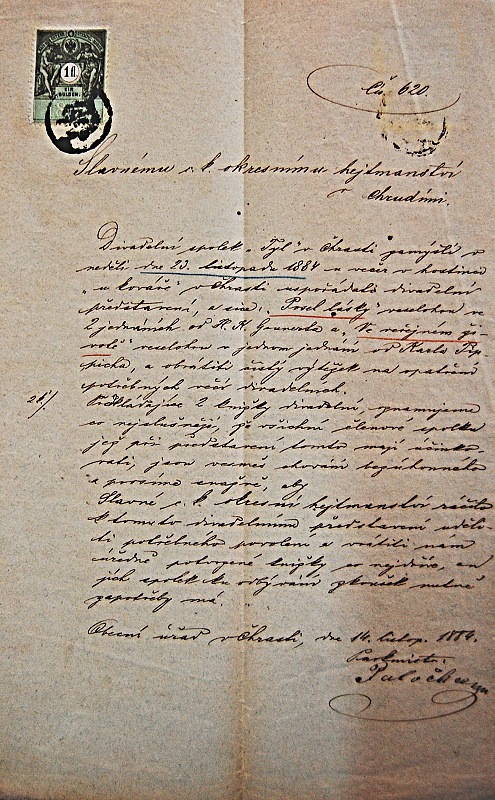 1 fl.
EIN
GULDEN.
Čís. 620.
Slavnému c. k. okresnímu hejtmanství
v Chrudimi.
Divadelní spolek „Tyl" v Chrasti zamýšlí v
neděli dne 23. listopadu 1884 u večer v hostinci
„u Kovářů" v Chrasti uspořádati divadelní
představení, a sice: „Posel lásky" veselohru ve
2 jednáních od a „Ve veřejném ži-
votě" veselohru v jednom jednání od Karla Pip-
picha, a obrátiti čistý výtěžek na opatření
potřebných věcí divadelních.
Předkládajíce 2 knížky divadelní, oznamujeme
co nejslušněji, že všichni členové spolku
jež při představení tomto mají účinko-
vati, jsou vesměs chování bezúhonného
a prosíme snažně, aby
Slavné c. k. okresní hejtmanství ráčilo
k tomuto divadelnímu představení uděli-
ti potřebného povolení a vrátiti nám
úředně potvrzené knížky co nejdříve, an
jich spolek ku odbývání zkoušek nutně
zapotřeby má.
Obecní úřad v Chrasti, dne 14. listop. 1884.